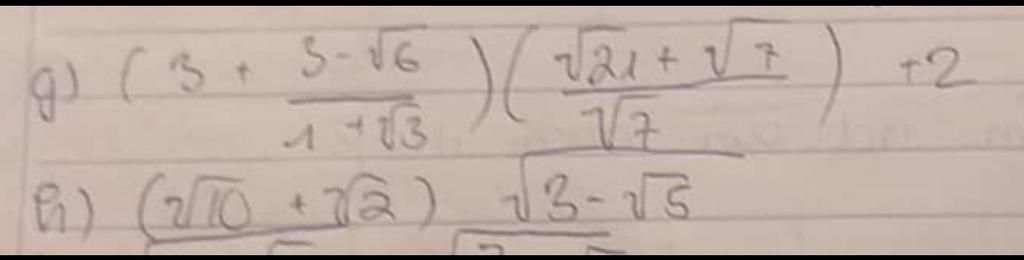 g) (3 + \frac{3-√6}{1+√3})(\frac{√21+√7}{√7}) +2
h) (√10 + √2) √(3-√5)